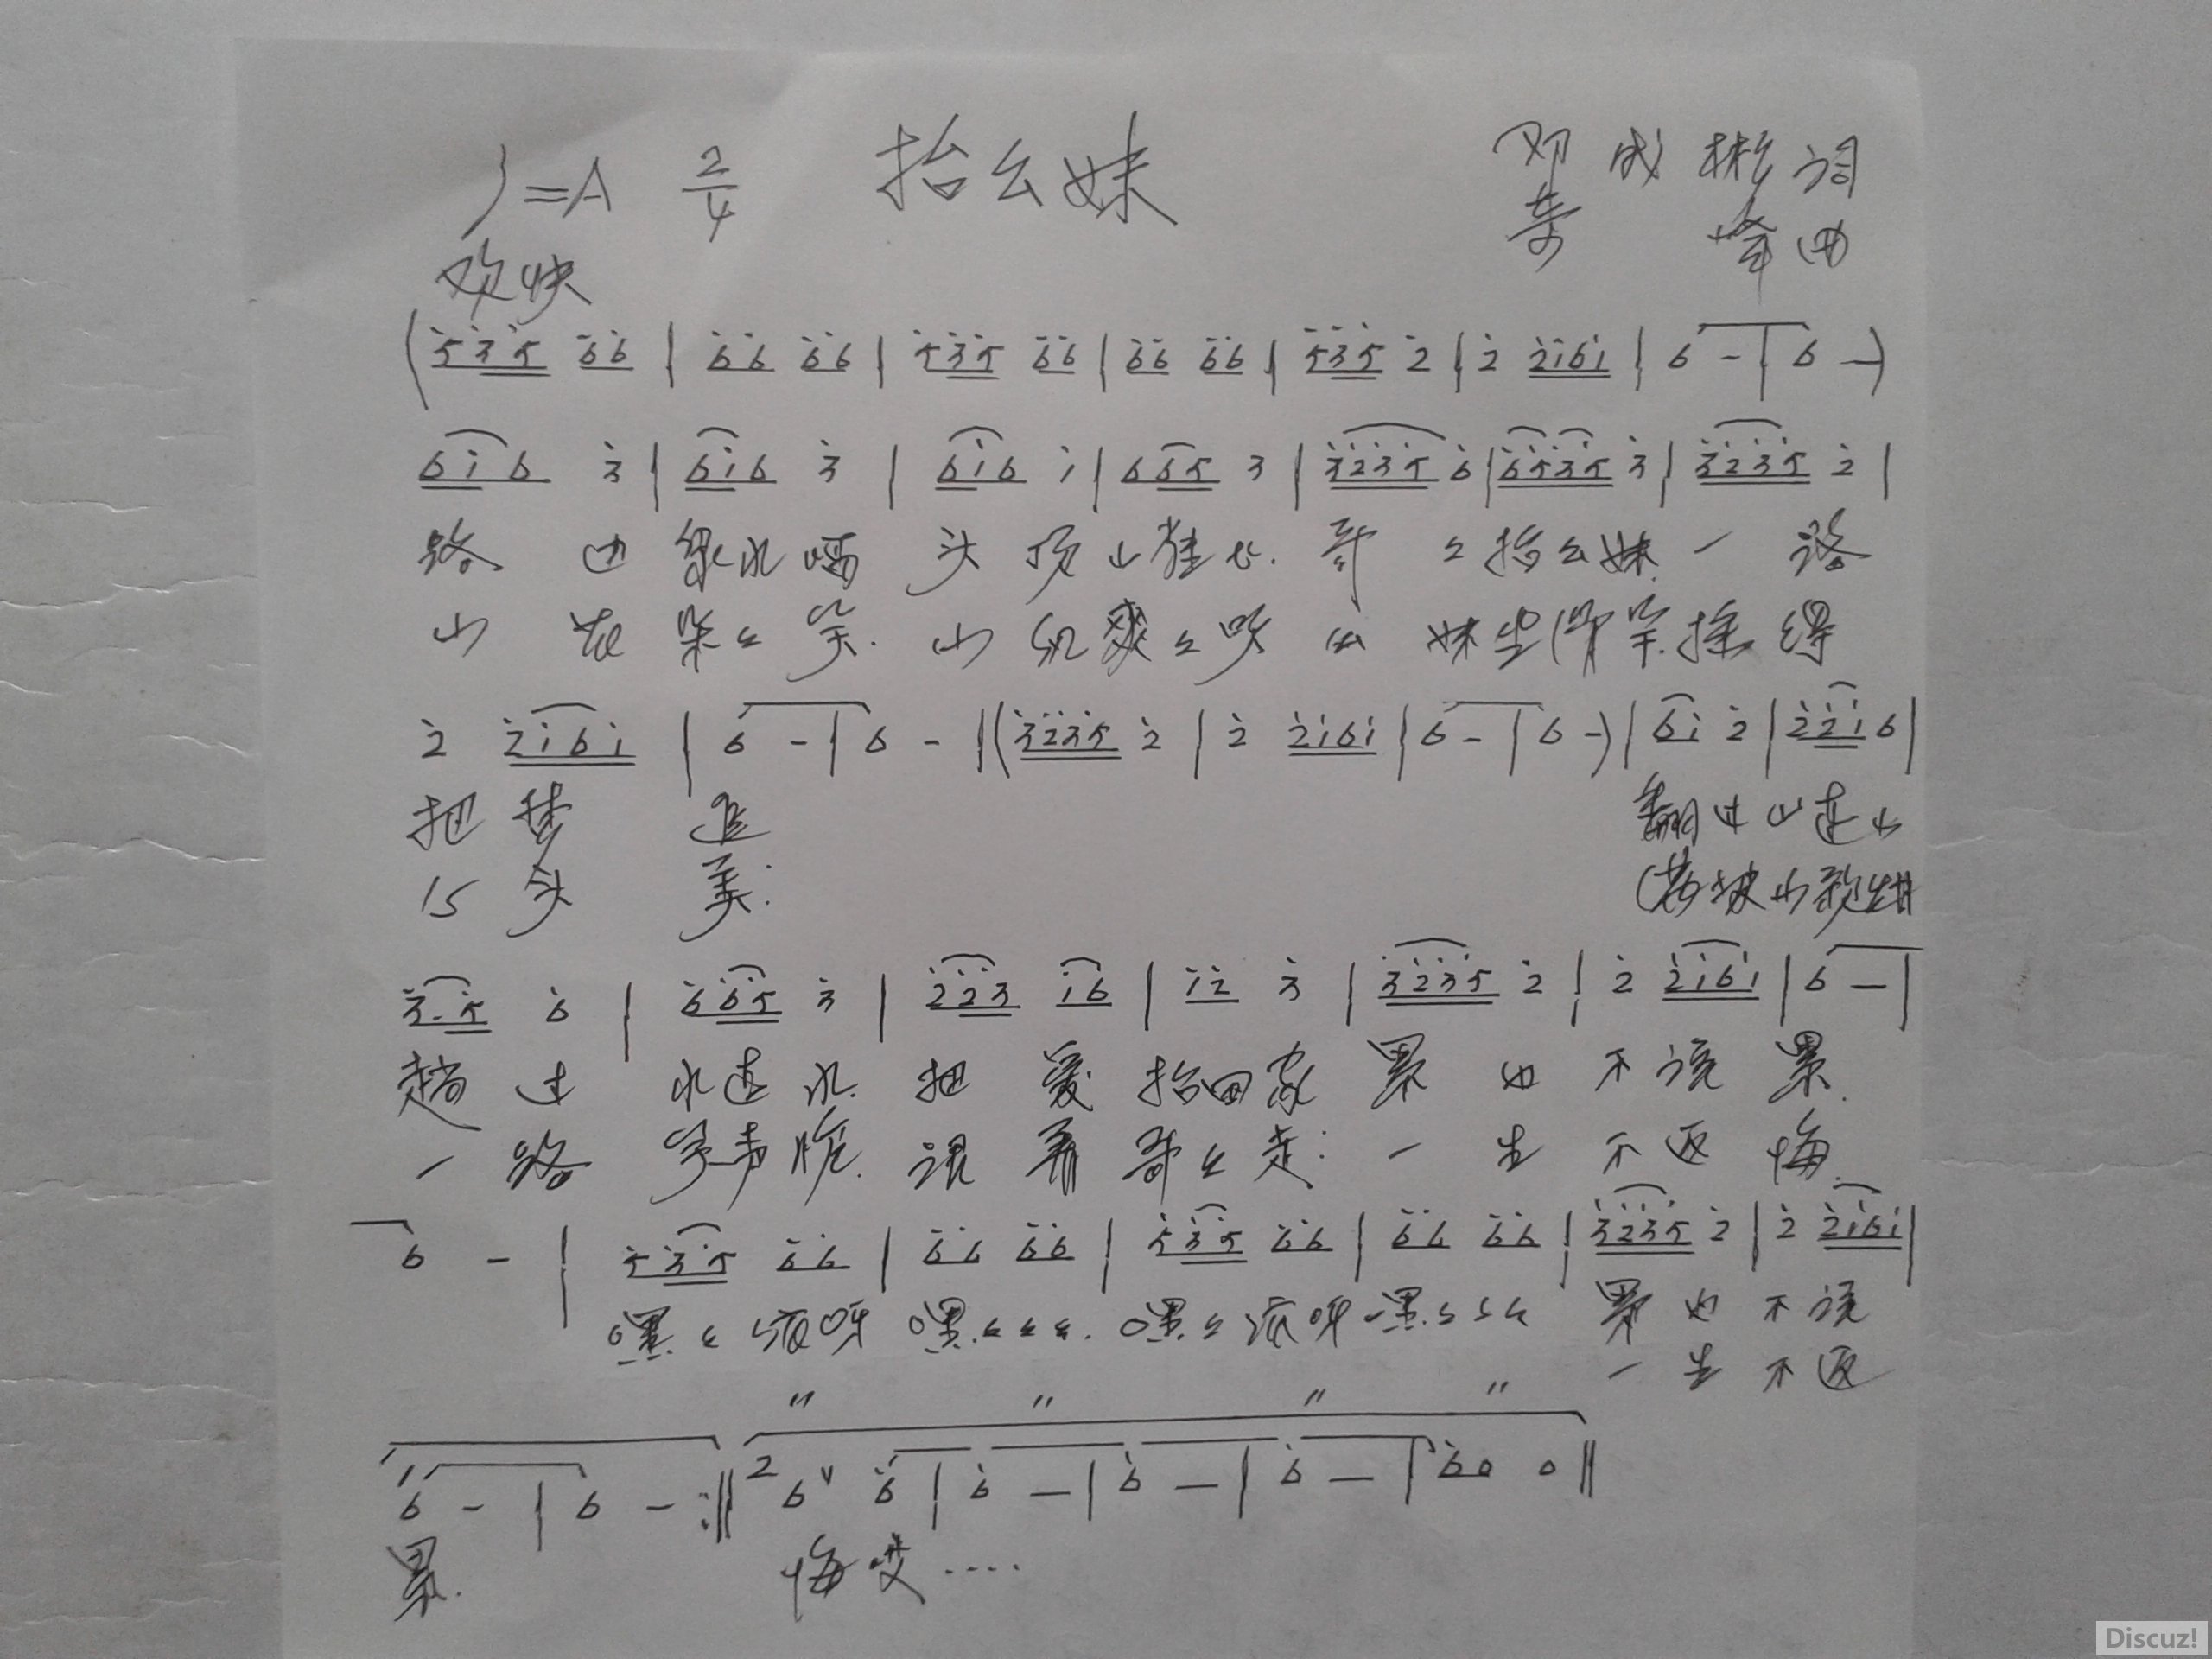 1=A 2/4 抬幺妹 邓成彬词
峰曲
欢快
(5̇3̇5̇ 6̇6̇ | 6̇6̇ 6̇6̇ | 5̇3̇5̇ 6̇6̇ | 6̇6̇ 6̇6̇ | 5̇3̇5̇ 2̇ | 2̇ 2̇1̇61̇ | 6 - | 6 -)
61̇6 3̇ | 61̇6 3̇ | 61̇6 1̇ | 665 3 | 3̇2̇3̇5̇ 6̇ | 6̇5̇3̇5̇ 3̇ | 3̇2̇3̇5̇ 2̇ |
路边绿水 头顶山 哥々抬幺妹 一路
山花朵々笑. 山风爽々吹 幺妹坐 摇得
2̇ 2̇1̇61̇ | 6 - | 6 - | (3̇2̇3̇5̇ 2̇ | 2̇ 2̇1̇61̇ | 6 - | 6 -) | 61̇ 2̇ | 2̇2̇1̇6 |
把梦追 翻过山连山
头美. 坡山歌甜
3̇.5̇ 6̇ | 6̇6̇5̇ 3̇ | 2̇2̇3̇ 1̇6 | 1̇2̇ 3̇ | 3̇2̇3̇5̇ 2̇ | 2̇ 2̇1̇61̇ | 6 - |
趟过水连水. 把爱抬回家 累也不说累.
一路 声脆. 跟着哥々走. 一生不返悔.
6 - | 5̇3̇5̇ 6̇6̇ | 6̇6̇ 6̇6̇ | 5̇3̇5̇ 6̇6̇ | 6̇6̇ 6̇6̇ | 3̇2̇3̇5̇ 2̇ | 2̇ 2̇1̇61̇ |
嘿々 呀 嘿々々々. 嘿々 呀 嘿々々々 累也不说
〃 〃 〃 〃 一生不返
1 6 - | 6 - :|| 2 6 ∨ 6̇ | 6̇ - | 6̇ - | 6̇ - | 6̇0 0 ||
累. 悔哎....
Discuz!